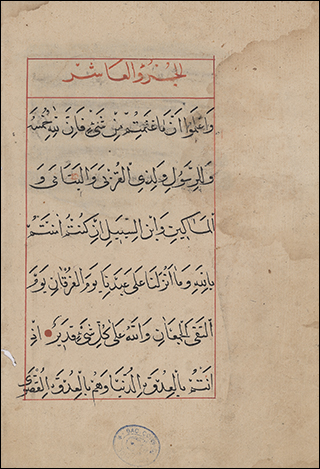 الجزو العاشر
وَاعْلَمُوا أَنَّمَا غَنِمْتُمْ مِنْ شَيْءٍ فَأَنَّ لِلَّهِ خُمُسَهُ
وَلِلرَّسُولِ وَلِذِي الْقُرْبَى وَالْيَتَامَى وَ
الْمَسَاكِينِ وَابْنِ السَّبِيلِ إِنْ كُنْتُمْ امَنْتُمْ
بِاللَّهِ وَمَا أَنْزَلْنَا عَلَى عَبْدِنَا يَوْمَ الْفُرْقَانِ يَوْمَ
الْتَقَى الْجَمْعَانِ وَاللَّهُ عَلَى كُلِّ شَيْءٍ قَدِيرٌ إِذْ
أَنْتُمْ بِالْعُدْوَةِ الدُّنْيَا وَهُمْ بِالْعُدْوَةِ الْقُصْوَى